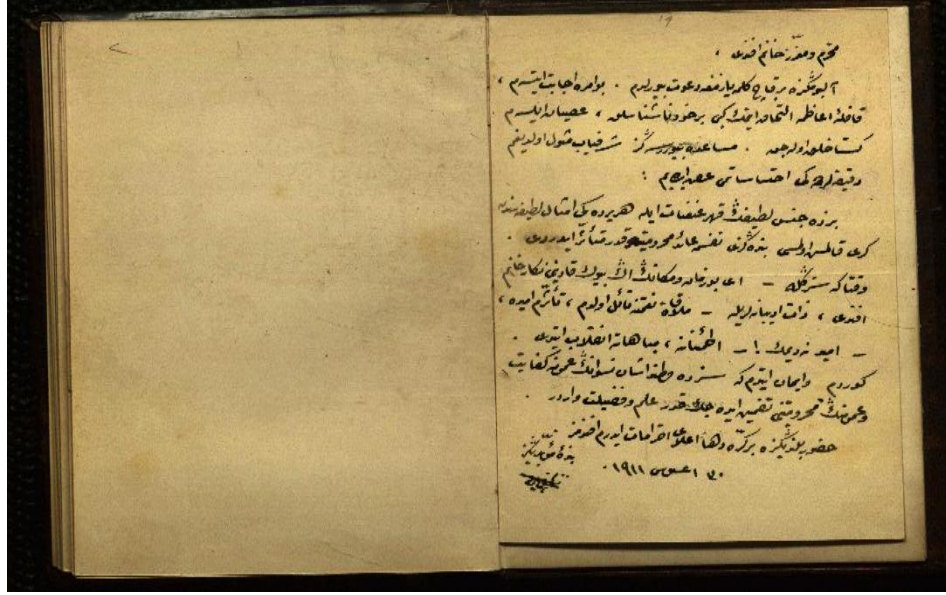 ١٩
محترم ومعزز خانم افندی ،
آلبومڭزه برقاچ كلمه يازمغه دعوت بيوريلدم . بو امره اجابت ايتسه‌م ،
قافلهٔ اعاظمه التحاق ايتمك كبی بر خودناشناسلق ، عصيان ايلسه‌م
كستاخلق اوله‌جق . مساعده بيوررسه‌ڭز شرفياب مثول اولديغم
دقيقه‌لرده‌كی احتساساتمی عرض ايده‌يم :
بزده جنس لطيفڭ قهر ايله هر يرده‌كی امثال لطيفه‌سندن
كری قالمش اولمسی بنده‌ڭزی نفسمه عائد محروميت قدر متأثر ايدردی .
وقتاكه سزڭله — ای بو زمان ومكانڭ اڭ بيوك قادينی نكار خانم
افندی ، ذات اديبانه‌لريله — ملاقات نعمتنه نائل اولدم ، تأثرم اميده ،
— اميد نه ديمك !— اطمئنانه ، مباهاته انقلاب ايتدی .
كوردم وايمان ايتدم كه سزده نسوانڭ عمومنه كفايت
وعمومنڭ محروميتنی تضمين ايده‌جك قدر علم وفضيلت واردر .
حضور بلندڭزه بر كره دها اعلای احترامات ايدرم افندمز
بنده‌ڭز
٣٠ اغستوس ١٩١١